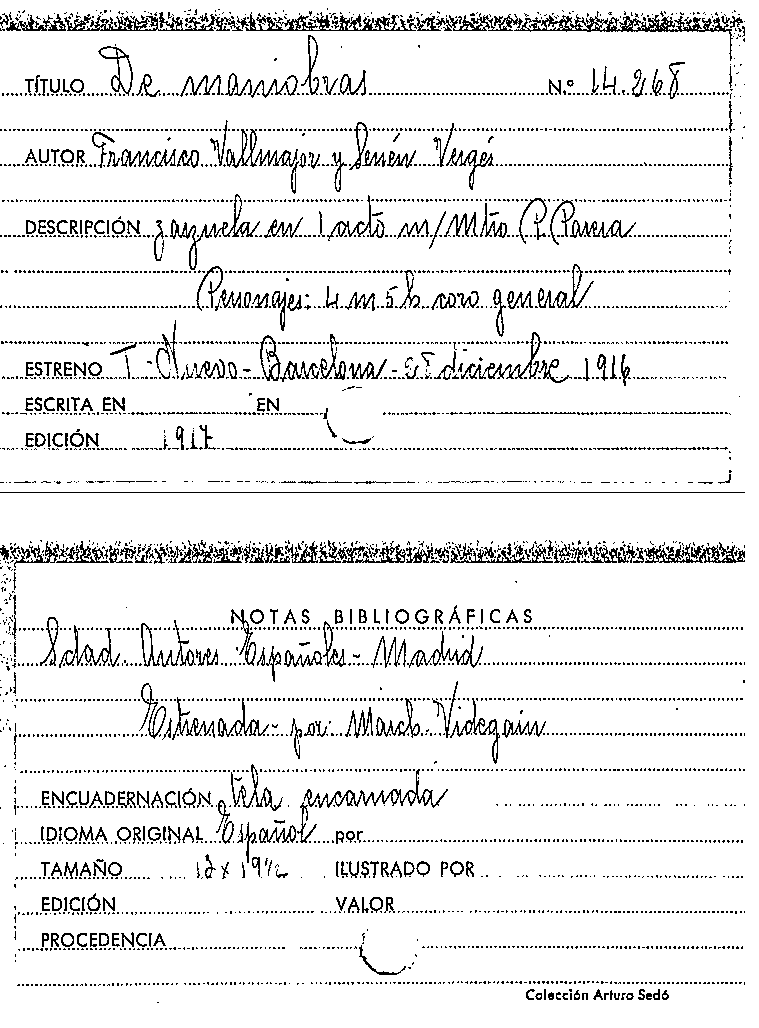 TÍTULO De maniobras N.º 14.268
AUTOR Francisco Vallmajor y Senén Vergés
DESCRIPCIÓN zarzuela en 1 acto m/Mtro P. Parera
Personajes: 4 m 5 h coro general
ESTRENO T. Nuevo - Barcelona - diciembre 1916
ESCRITA EN EN
EDICIÓN 1917
NOTAS BIBLIOGRÁFICAS
Sdad. Autores Españoles - Madrid
Estrenada - por: Videgain
ENCUADERNACIÓN tela encarnada
IDIOMA ORIGINAL Español por
TAMAÑO ILUSTRADO POR
EDICIÓN VALOR
PROCEDENCIA
Colección Arturo Sedó